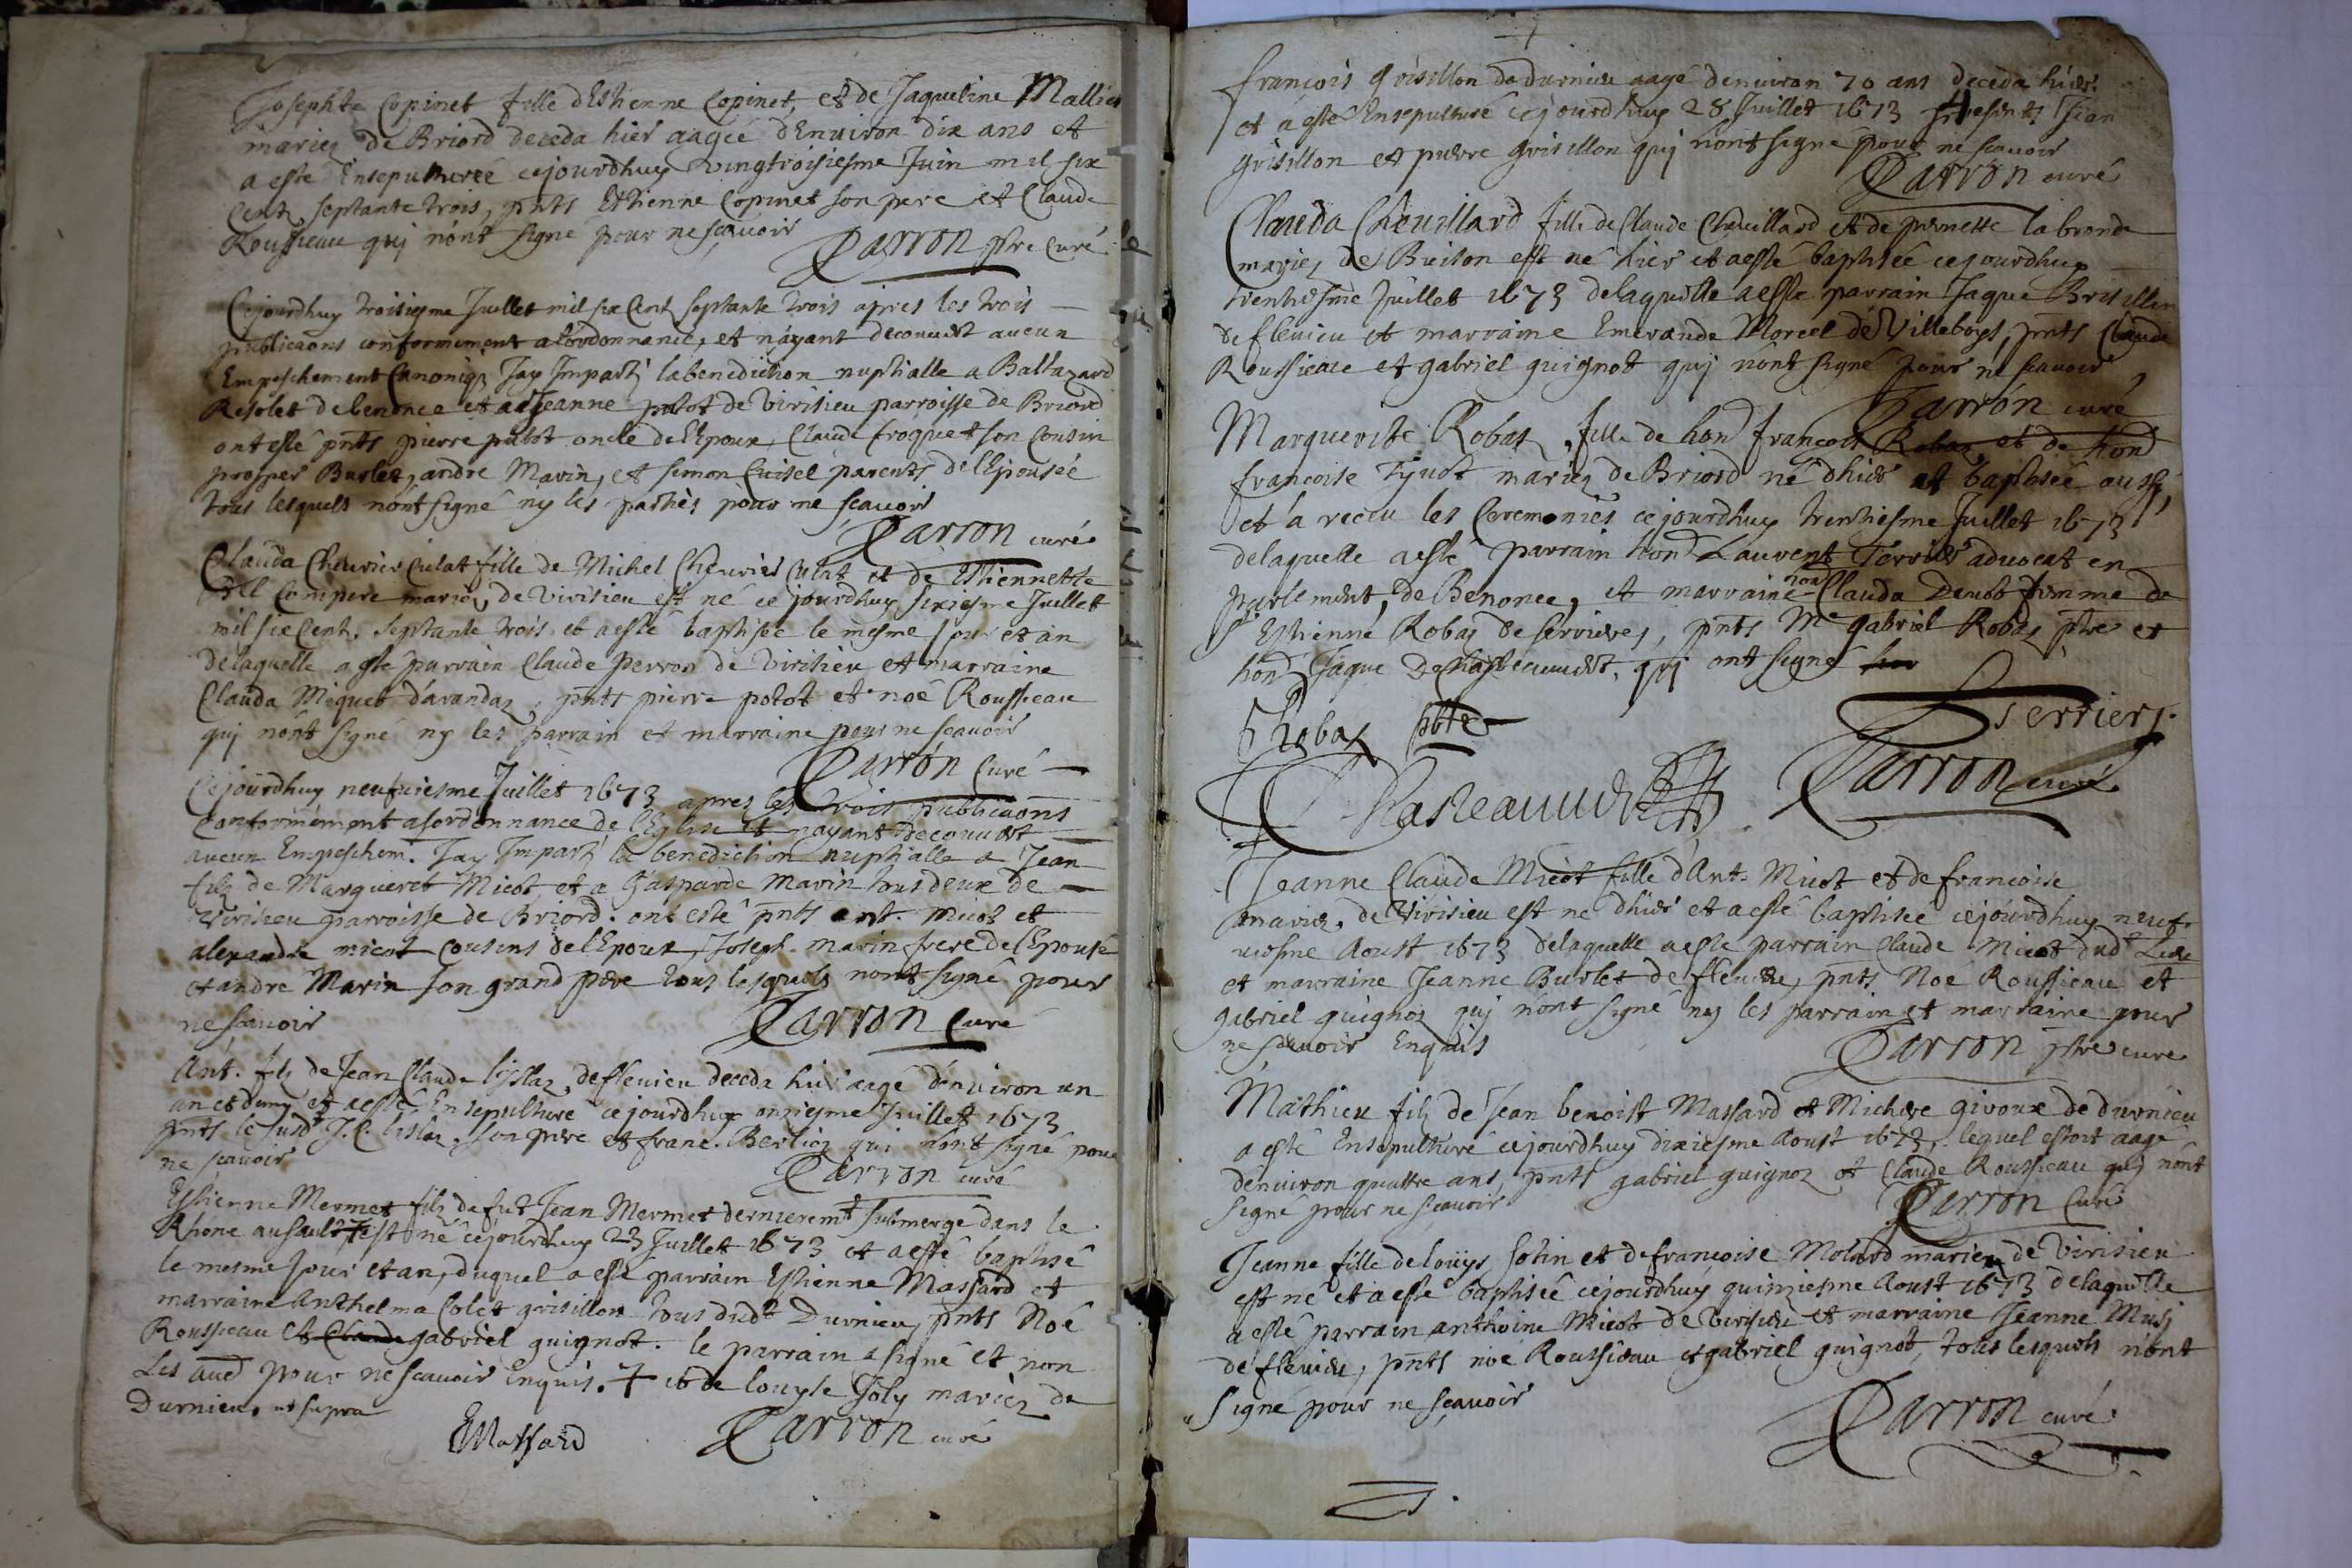 Josephte Copinet fille d'Estienne Copinet, et de Jaqueline Mallier
mariez de Briord deceda hier aagée d'Enuiron dix ans et
a esté Ensepulturée cejourdhuy vingtroisiesme Juin mil six
Cents septante trois, pnts Estienne Copinet son pere et Claude
Rousseau quj n'ont signé pour ne sçauoir
Parron ptre Curé
Cejourdhuy troisiesme Juillet mil six Cent septante trois apres les trois
publicaons conformement a lordonnance, et n'ayant decouuert aucun
Empeschement Canoniq; Jay Imparti la benediction nuptialle a Baltazard
Resolet de benonce et a Jeanne polot de virisieu parroisse de Briord
ont esté pnts pierre polot oncle de l'Epoux, Claude froquet son Cousin
prosper Burlet, andre Marin, et simon Cuisel parents de l'Epousée
tous lesquels nont signé ny les parties pour ne scauoir
Parron curé
Clauda Cheurier Culat fille de Michel Cheurier Culat et de Estiennette
Bel Compere mariez de virisieu est né ce jourdhuy sixiesme Juillet
mil six Cent. septante trois et a esté baptisée le mesme jour et an
de laquelle a esté parrain Claude perron de virisieu et marraine
Clauda Miquet d'arandaz, pnts pierre polot et noé Rousseau
quj n'ont signé ny les parrain et marraine pour ne scauoir
Parron Curé
Cejourdhuy neufuiesme Juillet 1673 apres les trois publicaons
Conformement a lordonnance de l'Eglise et nayant decouuert
aucun Empeschem. Jay Imparti la benediction nuptialle a Jean
filz de Margueret Micot et a Gasparde Marin tous deux de
virisieu parroisse de Briord. ont esté pnts ant. micot et
alexandre micot cousins de l'Epoux, Joseph marin frere de l'Epousé
et andre Marin son grand pere tous lesquels nont signé pour
ne scauoir
Parron Curé
Ant. filz de Jean Claude lislaz de fleuieu deceda hier aagé d'enuiron un
an et demy et a esté Ensepulturé cejourdhuy onziesme Juillet 1673
pnts le susd. J. C. lislaz son pere et franc. Berlioz qui n'ont signé pour
ne scauoir
Parron curé
Estienne Mermet filz de fut Jean Mermet dernierem.t submergé dans le
Rhone au sault + est né cejourdhuy 23 Juillet 1673 et a esté baptisé
le mesme jour et an, duquel a esté parrain Estienne Massard et
marraine Anthelma Colet grisillon tous dudt Durnieu, pnts Noé
Rousseau et Claude gabriel guignot. le parrain a signé et non
Les aud pour ne scauoir Enquis. + et de louyse Joly mariez de
Durnieu. ut supra
EMassard
Parron curé
françois Grisillon de durnieu aagé d'enuiron 70 ans deceda hier
et a esté Ensepulturé cejourdhuy 28 Juillet 1673 presents Jean
grisillon et pierre grisillon quj n'ont signé pour ne scauoir
Parron curé
Clauda Cheuillard fille de Claude Cheuillard et de pernette labronde
mariez de Briison est né hier et a esté baptisée cejourdhuy
trentiesme Juillet 1673 de laquelle a esté parrain Jaque Brisillon
de fleuieu et marraine Emerande Morcel de Villeboys, pnts Claude
Roussieau et gabriel guignot quj n'ont signé pour ne scauoir
Parron curé
Marguerite Robas, fille de hond françois Robas et de hond
francoise Tjuot mariez de Briord né d'hier et baptisée aussy
et a receu les Ceremonies cejourdhuy trentiesme Juillet 1673
de laquelle a esté parrain hond Laurent Terrier aduocat en
parlement, de Benonce, et marraine hon Clauda femme de
sr Estienne Robas de serrieres, pnts Mre gabriel Robas ptre et
hond Jaque De Chasteauuert, quj ont signé
GRobas pbtre
Terrier
Chasteauuert
Parron curé
Jeanne Claude Micot fille d'Ant. Micot et de francoise
mariez de Virisieu est né d'hier et a esté baptisée cejourdhuy neuf-
uiesme Aoust 1673 de laquelle a esté parrain Claude Micot dudt Lieu
et marraine Jeanne Burlet de fleuieu, pnts Noé Rousseau et
gabriel guignoz quj n'ont signé ny les parrain et marraine pour
ne scauoir Enquis
Parron ptre curé
Mathieu filz de Jean benoist Massard et Michere giroux de durnieu
a esté Ensepulturé cejourdhuy dixiesme Aoust 1673. lequel estoit aagé
d'enuiron quattre ans, pnts gabriel guignoz et Claude Rousseau quj n'ont
signé pour ne scauoir
Parron Curé
Jeanne fille de louys solin et de francoise Molard mariez de Virisieu
est né et a esté baptisée cejourdhuy quinziesme Aoust 1673 de laquelle
a esté parrain anthoine Micot de Virisieu et marraine Jeanne Musj
de fleuieu, pnts noé Rousseau et gabriel guignot, tous lesquels n'ont
signé pour ne scauoir
Parron curé